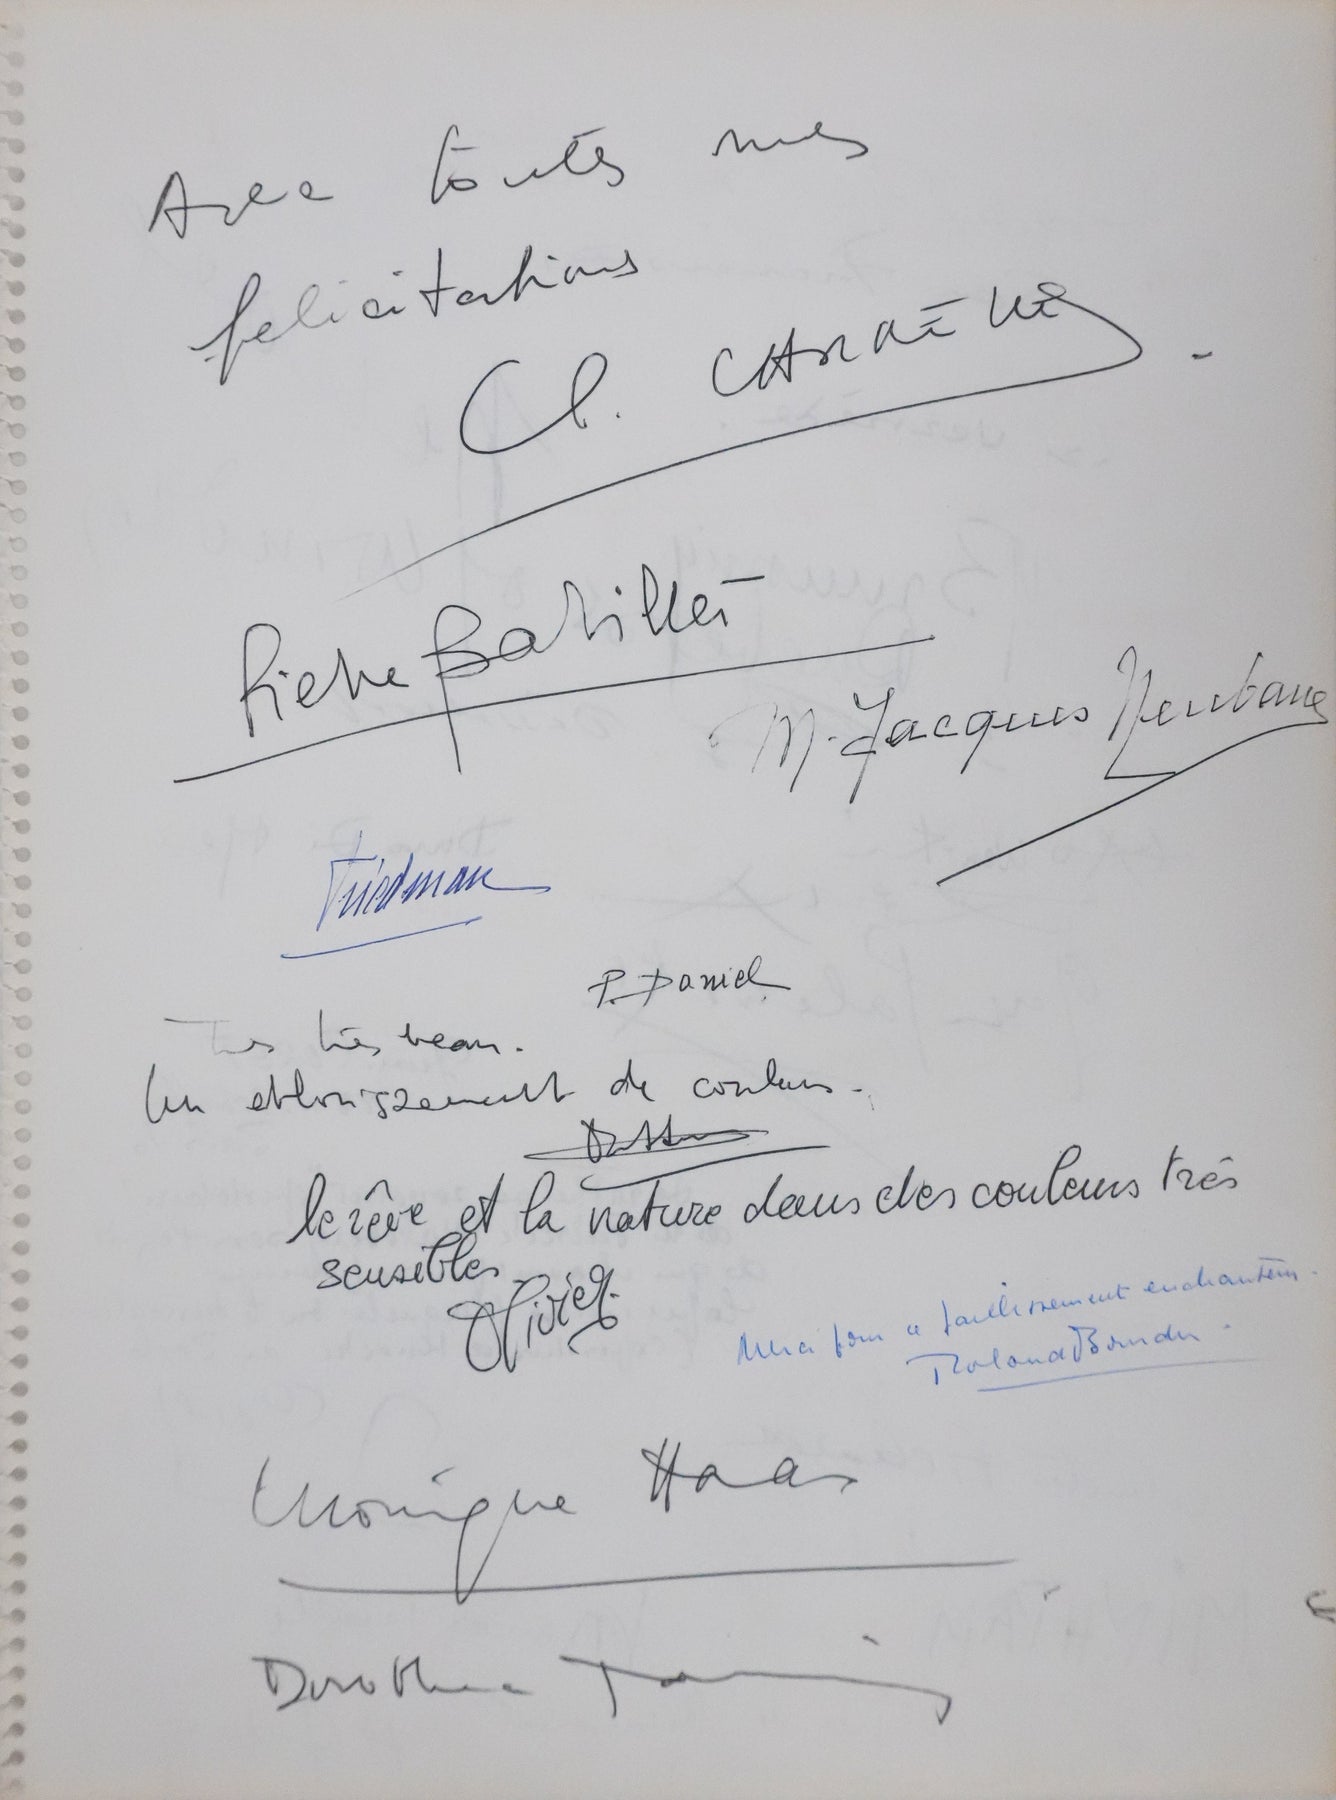 Avec toutes mes
felicitations
Cl.
Pierre Barillet
M. Jacques Neubauer
Friedman
P. Daniel
Très très beau.
Un eblouissement de couleurs.
le rêve et la nature dans des couleurs très
sensibles
Olivier
Merci pour ce jaillissement
Roland
Monique Haas
Dorothea Tanning